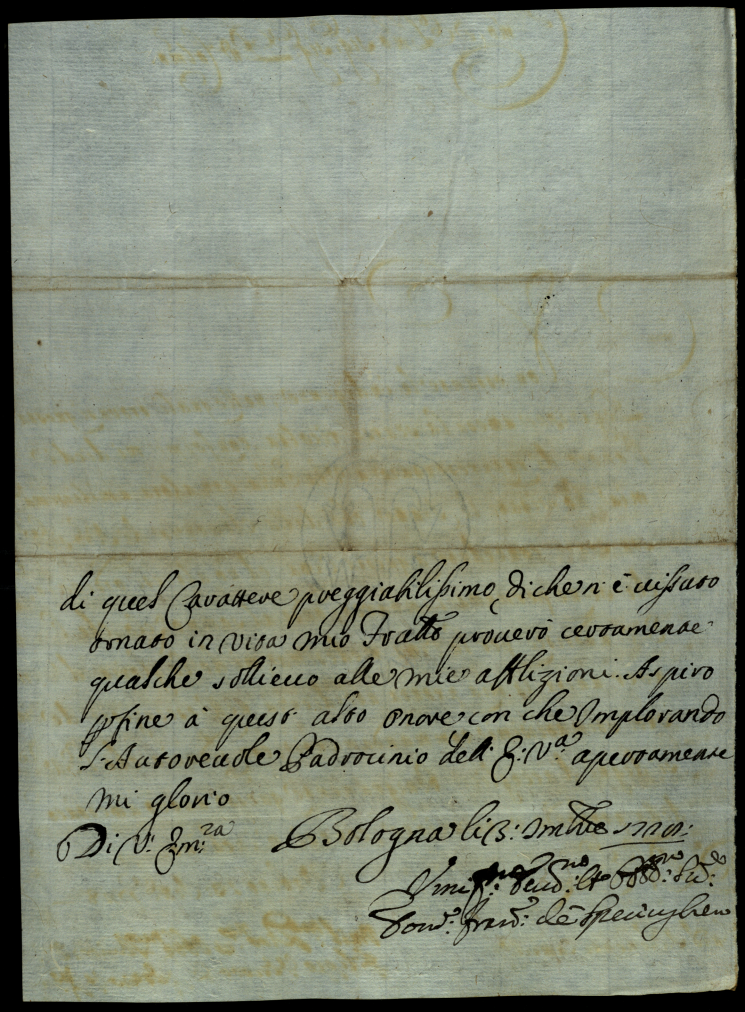 di quel Carattere preggiabilissimo, di che n'è vissuto
ornato in vita mio Fratello proverò certamente
qualche sollievo alle mie afflizioni. Aspiro
p fine à quest' alto onore con che Implorando
l'Autorevole Padrocinio dell' E: V:a apertamente
mi glorio
Di V: Em:za Bologna li 3:
Umi:mo Devd:mo et Obb:mo